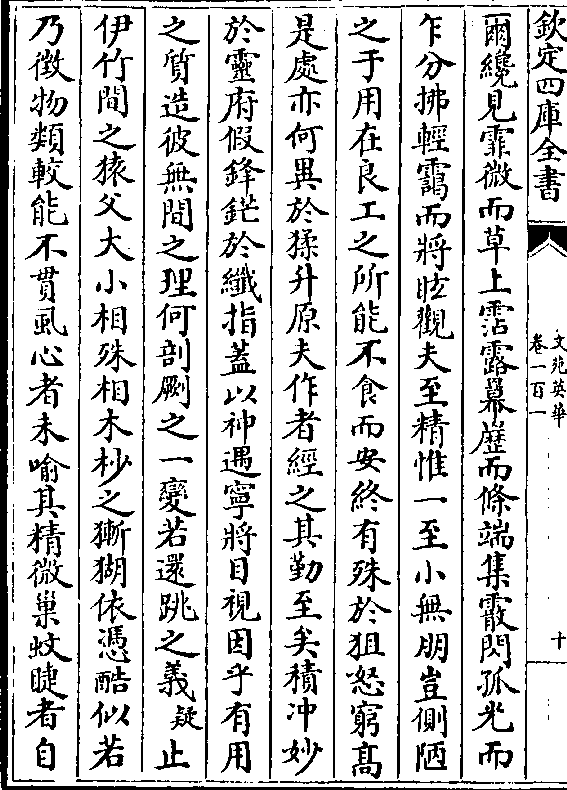 欽定四庫全書
文苑英華
卷一百一
十
爾纔見霏微而草上霑露羃䍥而條端集霰閃孤光而
乍分拂輕靄而將眩觀夫至精惟一至小無朋豈側陋
之于用在良工之所能不食而安終有殊於狙怒窮髙
是處亦何異於猱升原夫作者經之其勤至矣積冲妙
於靈府假鋒鋩於纖指蓋以神遇寧將目視因乎有用
之質造彼無間之理何剖劂之一變若還跳之義疑止
伊竹間之猿父大小相殊相木杪之獑猢依憑酷似若
乃徴物類較能不貫虱心者未喻其精微巢蚊睫者自